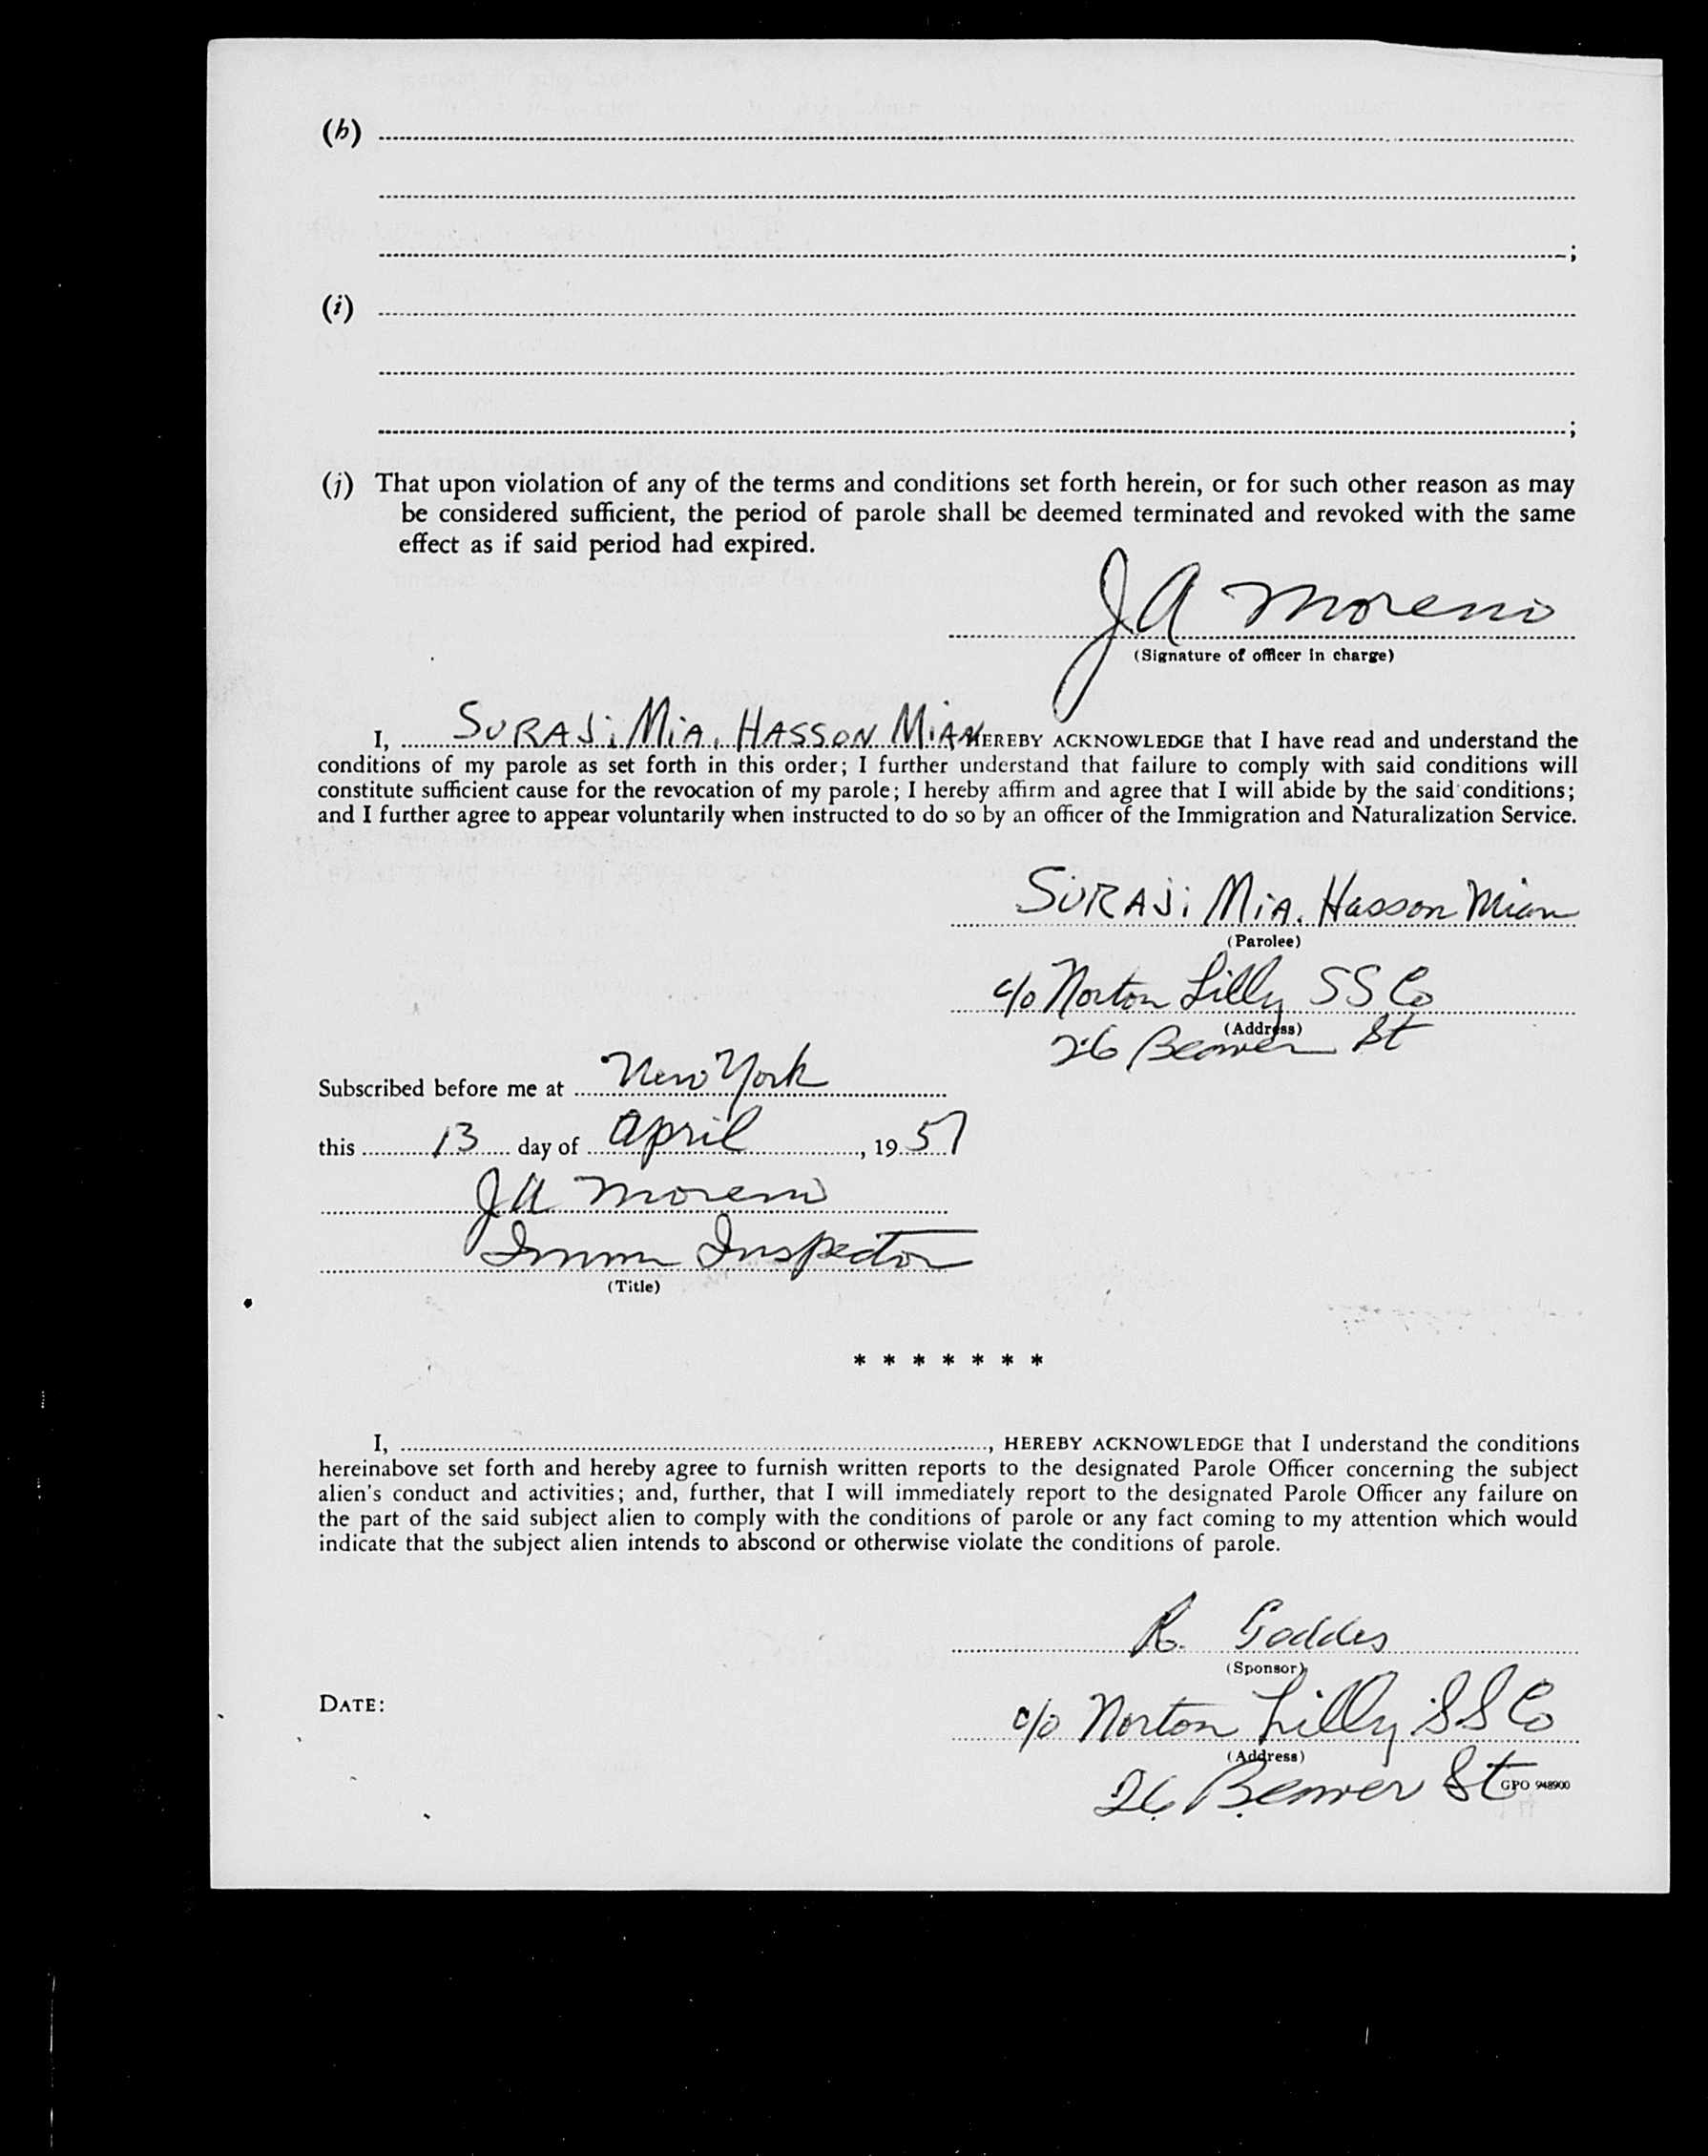 (h)
;
(i)
;
(j) That upon violation of any of the terms and conditions set forth herein, or for such other reason as may
be considered sufficient, the period of parole shall be deemed terminated and revoked with the same
effect as if said period had expired.
J A Moreno
(Signature of officer in charge)
I, SURAJi MiA, HASSON MiAN HEREBY ACKNOWLEDGE that I have read and understand the
conditions of my parole as set forth in this order; I further understand that failure to comply with said conditions will
constitute sufficient cause for the revocation of my parole; I hereby affirm and agree that I will abide by the said conditions;
and I further agree to appear voluntarily when instructed to do so by an officer of the Immigration and Naturalization Service.
SURAJi MiA. Hasson Mian
(Parolee)
c/o Norton Lilly SS Co
(Address)
26 Beaver St
Subscribed before me at New York
this 13 day of April, 1957
J A Moreno
Imm Inspector
(Title)
* * * * * * *
I, , HEREBY ACKNOWLEDGE that I understand the conditions
hereinabove set forth and hereby agree to furnish written reports to the designated Parole Officer concerning the subject
alien's conduct and activities; and, further, that I will immediately report to the designated Parole Officer any failure on
the part of the said subject alien to comply with the conditions of parole or any fact coming to my attention which would
indicate that the subject alien intends to abscond or otherwise violate the conditions of parole.
R. Goddes
(Sponsor)
DATE:
c/o Norton Lilly SS Co
(Address)
26 Beaver St
GPO 948900